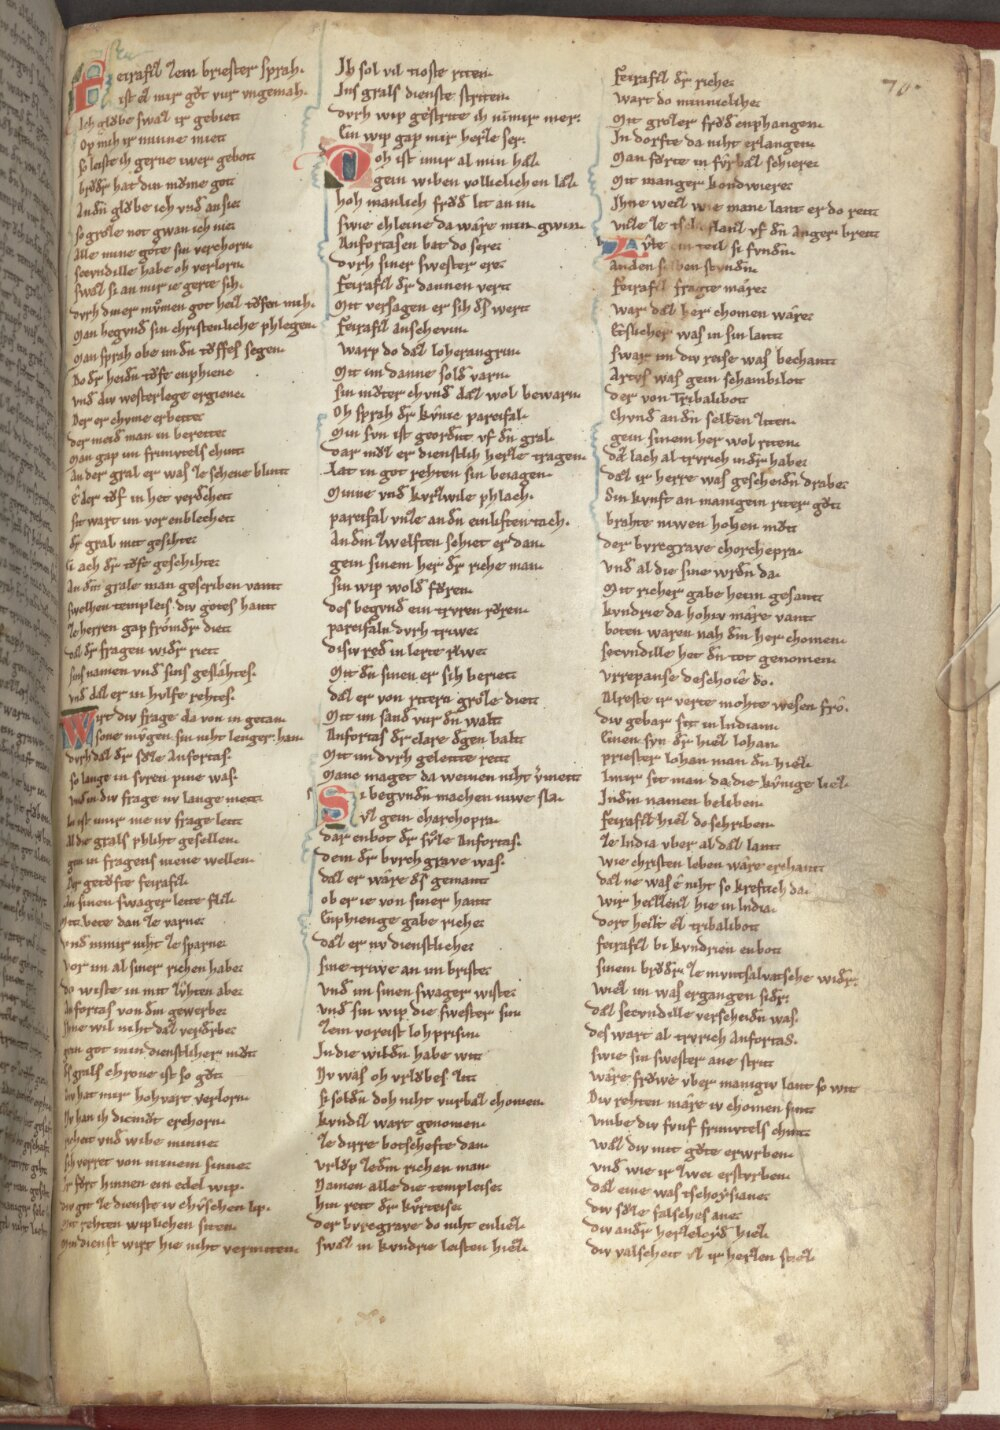 70.
Feirafil zem briester sprah.
ist ez mir gůt vur vngemah.
Ich glǒbe swaz ir gebiett
Op mih ir minne miett
so leiste ih gerne iwer gebott
brůdr hat din mǒme gott
An dn̄ glǒbe ich vnd an sie
so groze not gwan ich nie
Alle mine gǒte sin verchorn
Secvndille habe oh verlorn
Swaz si an mir ie gerte sih
dvrh diner mǒmen got heiz tǒfen mih.
Man begvnd sin christenliche phlegen
Man sprah obe im dn̄ tǒffes segen
Do dr heidn̄ tǒfe enphiene
vnd div westerlege ergiene
Der er chvme erbeite
der meid man in bereite
Man gap im frimvtels chint
An der gral er was ze sehene blint
E der tǒf in het verdehett
sit wart im vor enblechett
dr gral mit gesihte
N ach dr tǒfe geschihte
An dm̄ grale man gescriben vantt
swelhen templeis div gotes hantt
ze herren gap frǒmdr diett
daz dr fragen widr riett
sins namen vnd sins geslåhtes.
vnd daz er in hvlfe rehtes.
Wirt div frage da von in getan
sone mvgen sin niht lenger han
dvrh daz dr sůze Anfortas.
so lange in svren pine was.
vnd in div frage nv lange meit
In ist imir me nv frage leit
Al die grals phliht gesellen
gen in fragens niene wellen
Der getǒfte feirafiz.
An sinen swager leite fliz.
Mit bete dan ze varne
vnd nimir niht ze sparne
Vor im al siner richen habe
do wiste in mit zvhten abe
Anfortas von dm̄ gewerbe
Ihne wil niht daz verderbe
gein got min dienstlicher můt
Ds grals chrone ist so gůt
Div hat mir hohvart verlorn
Nv han ih diemůt erchorn
richeit vnd wibe minne
Sih verret von minem sinne
Ir fůrt hinnen ein edel wip.
div git ze dienste iv chvschen lip.
Mit rehten wiplichen siten
Min dienst wirt hie niht vermiten
Ih sol vil tioste riten
Ins grals dienste striten
dvrh wip gestrite ih nimir mer.
Ein wip gap mir herze ser.
Doh ist imir al min haz.
gein wiben vollichlichen laz.
hoh manlich frǒd lit an in
swie chleine da wåre min gwin
Anfortasen bat do sere
dvrh siner swester ere
Feirafiz dr dannen vert
Mit versagen er sih ds wert
Feirafiz anschevin
Warp do daz loherangrin
Mit im danne sold varn
Sin můter chvnd daz wol bewarn
Oh sprah dr kvnic parcifal.
Min svn ist geordnt vf dn̄ gral.
dar můz er dienstlih herze tragen
Lat in got rehten sin beiagen.
Minne vnd kvrzwile phlach.
parcifal vnze an dn̄ einliften tach.
An dm̄ zwelften schiet er dan
gein sinem her dr riche man
sin wip wold fůren
des begvnd ein trvren rǒren
parcifaln dvrh triwe
disiv red in lerte rǐwe
Mit dn̄ sinen er sih beriett
daz er von ritern groze diett
Mit im sand vur dn̄ waltt
Anfortas dr clare degen baltt
Mit im dvrh geleitte reitt
Mane maget da weinen niht vermeitt
Si begvndn machen niwe sla
Vz gein charchopra
dar enbot dr sůze Anfortas.
dem dr bvrch grave was.
daz er wåre ds gemantt
ob er ie von siner hantt
Enphienge gabe riche
daz er nv dienstliche
Sine triwe an im briste
vnd im sinen swager wiste
vnd sin wip die swester sin
zem voreist lohprisin
In die wildn̄ habe witt
Nv was oh vrlobes zitt
si soldn̄ doh niht vurbaz chomen
kvndrie wart genomen
ze dirre botschefte dan
vrlǒp ze dm̄ richen man
Namen alle die templeise
hin reit dr kvrteise
der bvregrave do niht enliez.
swaz in kvndrie leisten hiez.
Feirafiz dr riche
Wart do minnichliche
Mit grozer frǒd enphangen
In dorfte da niht erlangen
Man fůrte in fvrbaz schiere
Mit manger kondwiere
Ihne weiz wie mane lant er do reitt
vnze ze tschoflanz vf dn̄ anger breitt
Lvte ein teil si fvndn
an den selben stvndn
Feirafiz fragte måre
war daz her chomen wåre
Eslicher was in sin lantt
swar im div reise was bechantt
Artvs was gein schambilott
der von Tribalibott
chvnd an dn̄ selben ziten
gein sinem her wol riten
daz lach al trvrich in dr habe
daz ir herre was gescheidn drabe
din kvnft an manigem riter gůt
brahte niwen hohen můtt
der bvregrave chorchopra
vnd al die sine wrdn da
Mit richer gabe heim gesantt
kvndrie da hohiv måre vantt
boten waren nah dm̄ her chomen
Secvndille het dn̄ tot genomen
vrrepanse deschoie do.
Alreste ir verte mohte wesen frô.
div gebar sit in Indiam
Einen svn dr hiez Iohan
priester Iohan man dn̄ hiez
Imir sit man da die kvnige liez
In dm̄ namen beliben
Feirafiz hiez do schriben
ze India vber al daz lantt
wie christen leben wåre erchantt
daz ne was ê niht so kreftich da
wir heizzenz hie in India.
dort heizt ez tribalibott
Feirafiz bi kvndrien enbott
sinem brůdr ze mvntsalvatsche widr
wiez im was ergangen sidr.
daz Secvndille verscheidn was.
des wart al trvrich Anfortas.
swie sin swester ane stritt
wåre frǒwe vber manigiv lant so witt
Div rehten måre iv chomen sintt
vmbe div fvnf frimvtels chint
waz div mit gůte erwrben
vnd wie ir zwei erstvrben
daz eine was tschoysiane
div sůze falsches ane
div andr herzeloyd hiez
div valscheit vz ir herzen stiez